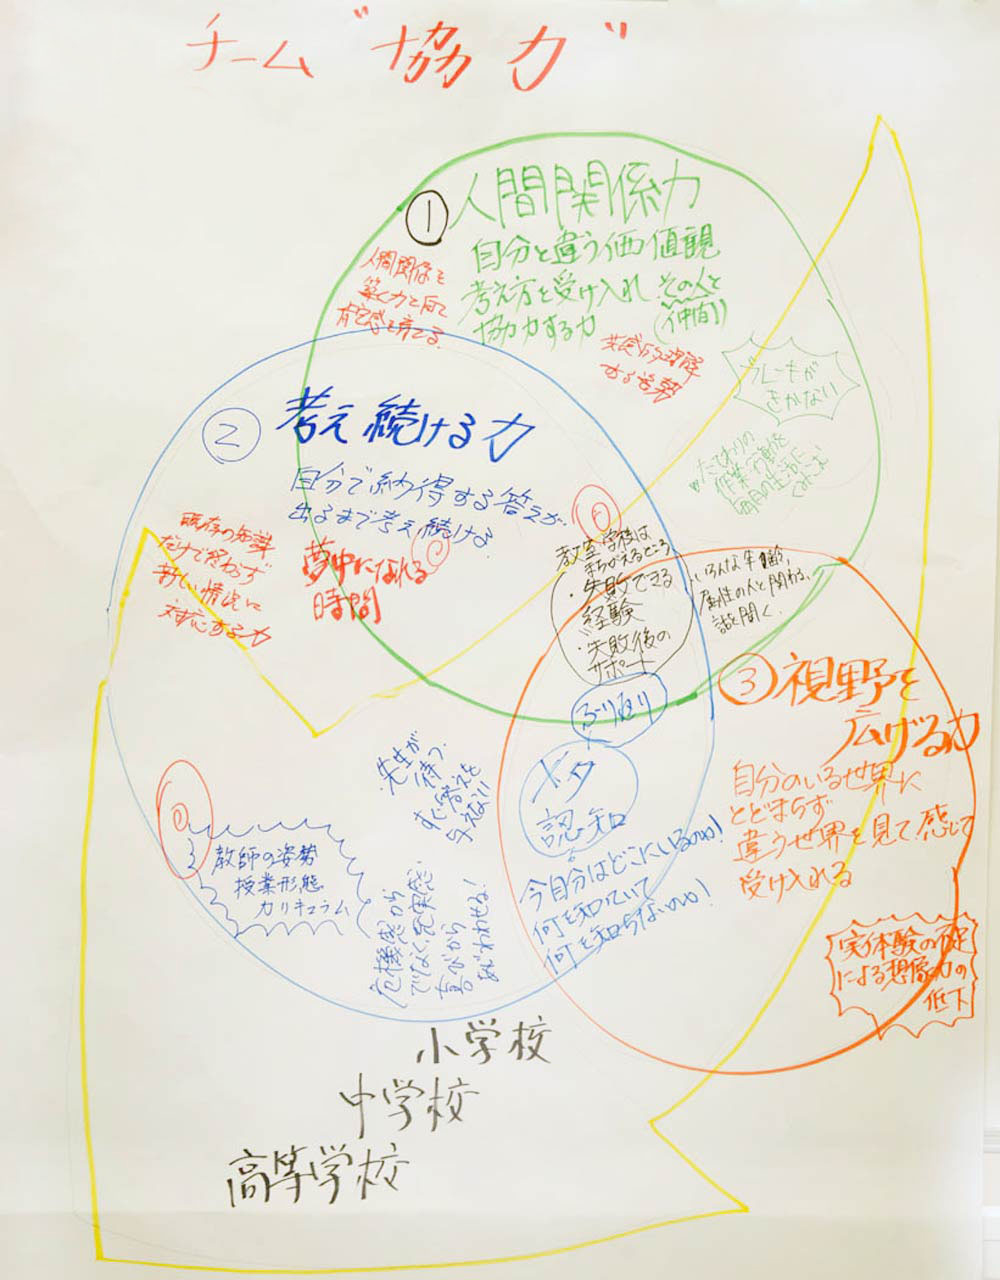 チーム"協力"
① 人間関係力
自分と違う価値観
考え方を受け入れ その人と
(仲間)
協力する力
人間関係を
築く力を育て
肯定感を育てる
共感的理解
する姿勢
ブレーキが
きかない
たてわりの
作業・行動を
毎日の生活に
② 考え続ける力
自分で納得する答えが
出るまで考え続ける
既存の知識
だけで終わらず
新しい情況に
対応する力
夢中になれる
時間
教室・学校は
まちがえるところ
・失敗できる
経験
・失敗後の
サポート
いろんな年齢、
属性の人と関わる、
話を聞く
ふり返り
③ 視野を
広げる力
自分のいる世界に
とどまらず
違う世界を見て感じて
受け入れる
メタ
認知
今自分はどこにいるのか!
何を知っていて
何を知らないのか!
先生が
待つ、
すぐ答えを
与えない
教師の姿勢
授業形態
カリキュラム
危機感から
でなく充実感
喜びから
あじわわせる!
実体験の不足
による想像力の
低下
小学校
中学校
高等学校